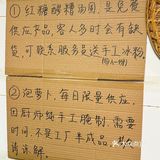 ①红糖醪糟汤圆,是免费
供应产品,客人多时会有缺
货,可联系服务员送手工冰粉
②泡萝卜,每日限量供应,
因厨师纯手工腌制,需要
时间,不是工厂半成品,
请谅解。